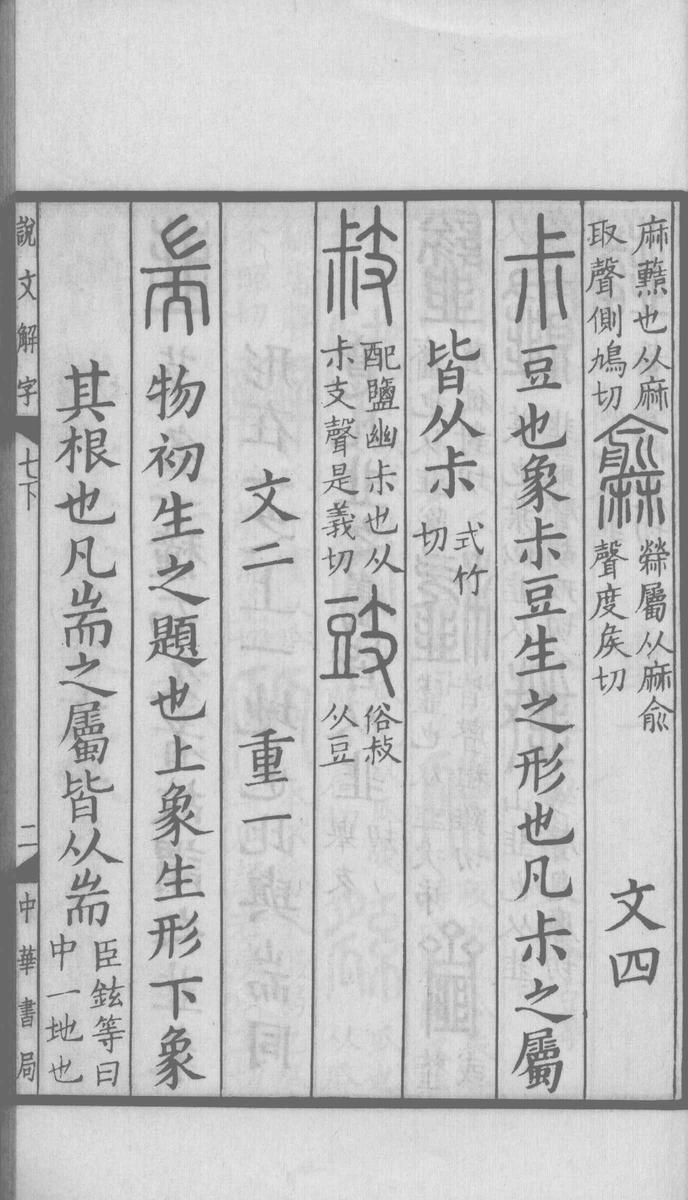 麻䕸也从麻
取聲側鳩切
䵉
檾屬从麻俞
聲度矦切
文四
尗豆也象尗豆生之形也凡尗之屬
皆从尗
式竹
切
𢻃
配鹽幽尗也从
尗支聲是義切
豉
俗𢻃
从豆
文二 重一
耑物初生之題也上象生形下象
其根也凡耑之屬皆从耑
臣鉉等曰
中一地也
說文解字 七下 二 中華書局